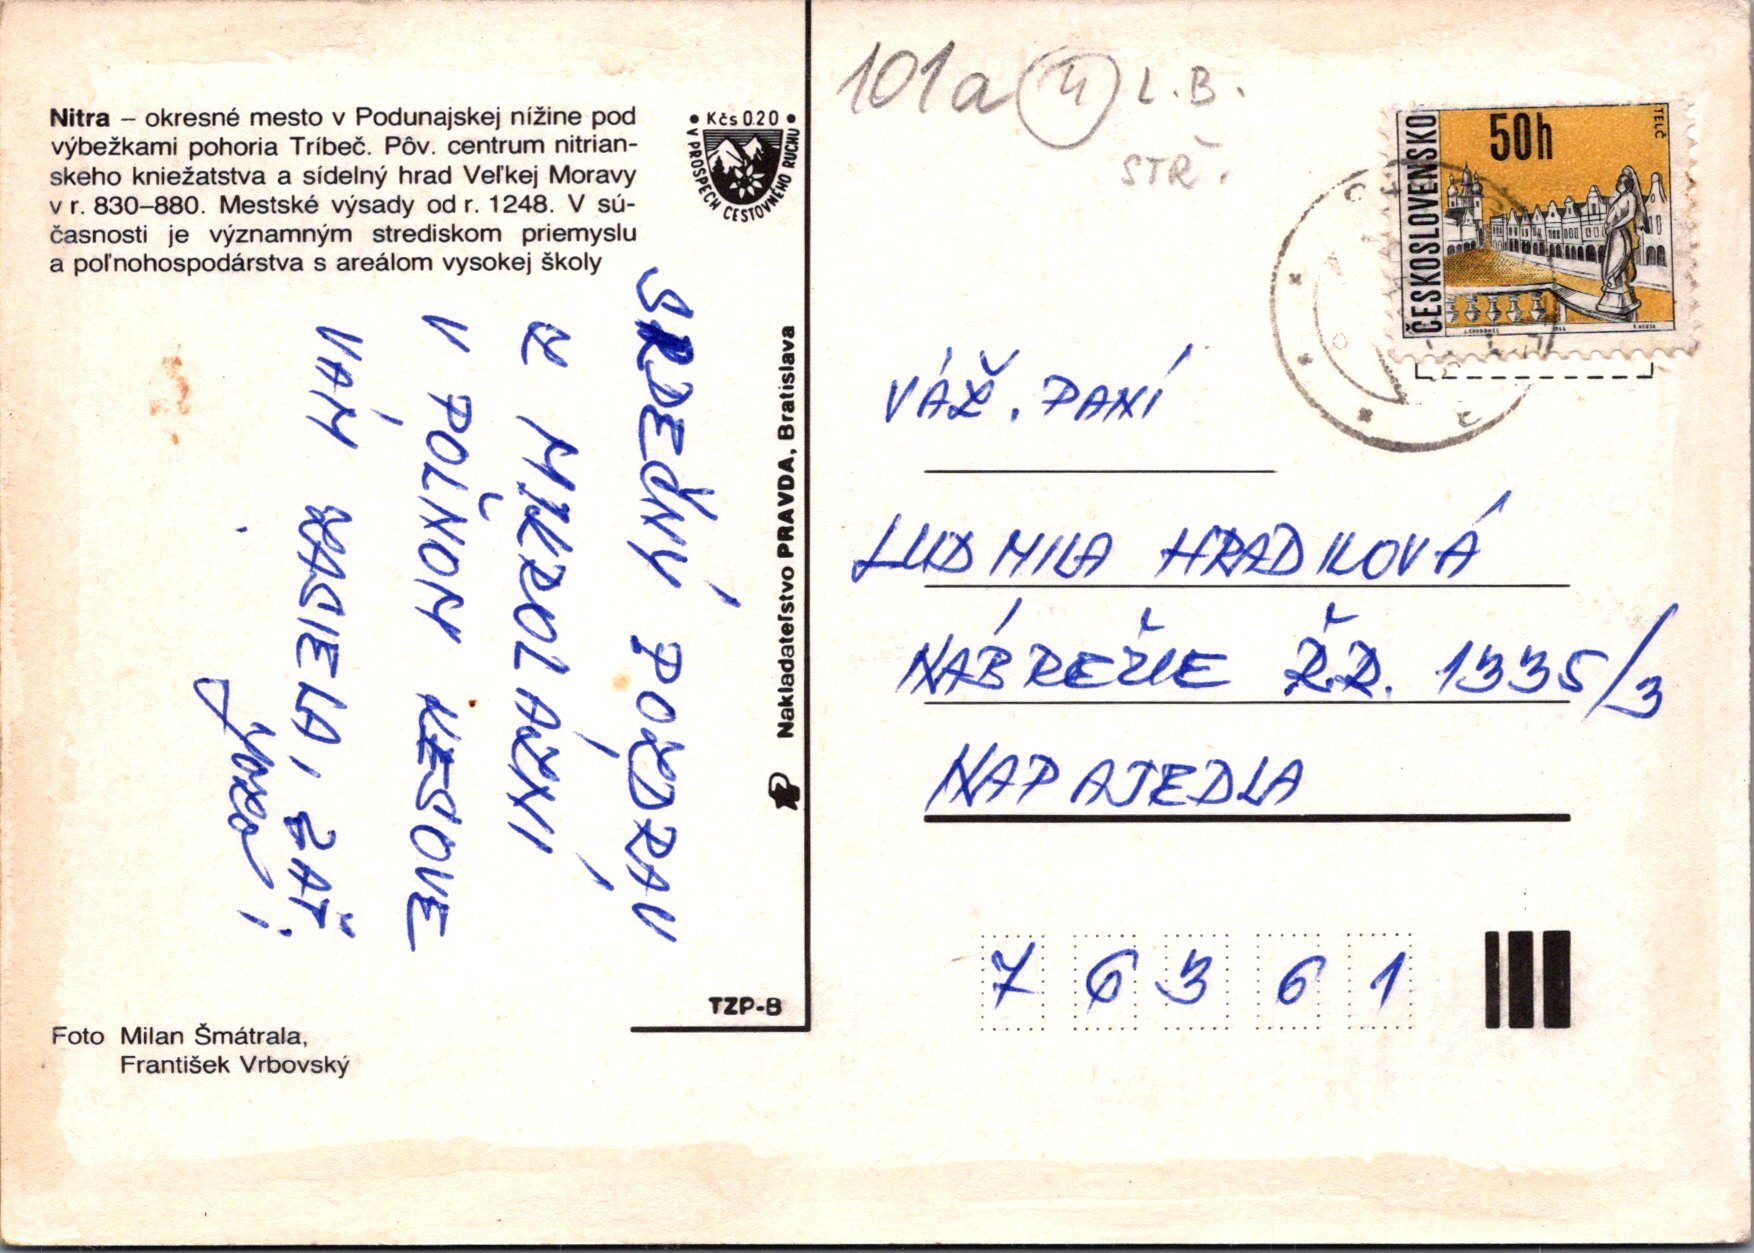 Nitra – okresné mesto v Podunajskej nížine pod
výbežkami pohoria Tríbeč. Pôv. centrum nitrian-
skeho kniežatstva a sídelný hrad Veľkej Moravy
v r. 830–880. Mestské výsady od r. 1248. V sú-
časnosti je významným strediskom priemyslu
a poľnohospodárstva s areálom vysokej školy
• Kčs 0.20 •
V PROSPECH CESTOVNÉHO RUCHU
SRDEČNÝ POZDRAV
Z MIKROLÁZNÍ
V POĽNOM KESOVE
VÁM ZASIELA, ZAŤ
Nakladateľstvo PRAVDA, Bratislava
TZP-8
Foto Milan Šmátrala,
František Vrbovský
101a 4 L.B.
STŘ.
ČESKOSLOVENSKO
50h
TELČ
VÁŽ. PANÍ
LUDMILA HRADILOVÁ
NÁBREŽIE Ř.R. 1335/3
NAPAJEDLA
76361